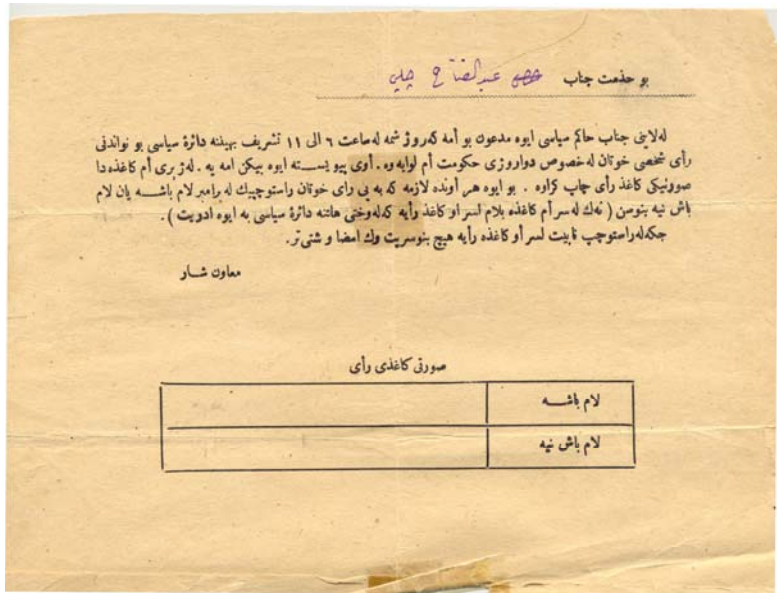 بو خذمت جناب عبدالفتاح چلبی
له‌لاینی جناب حاکم سیاسی ایوه مدعون بو أمه که‌روژ شمه له‌ساعت ٦ الی ١١ تشریف بهیننه دائرۀ سیاسی بو نواندنی
رأی شخصی خوتان له‌خصوص دواروژی حکومت أم لوایه‌وه . أوی پیویسته ایوه بیکن امه یه . له‌ژیری أم کاغذه‌دا
صوورتیکی کاغذ رأی چاپ کراوه . بو ایوه هر أونده لازمه که به پی رای خوتان راستوچپیك له برامبر لام باشه یان لام
باش نیه بنوسن ( نه‌ك له‌سر أم کاغذه بلام لسر او کاغذ رأیه که‌له‌وختی هاتنه دائرۀ سیاسی به ایوه ادویت ) .
جکه‌له‌راستوچپ نابیت لسر أو کاغذه رأیه هیچ بنوسریت وك امضا و شتی تر .
معاون شار
صورتی کاغذی رأی
لام باشه
لام باش نیه